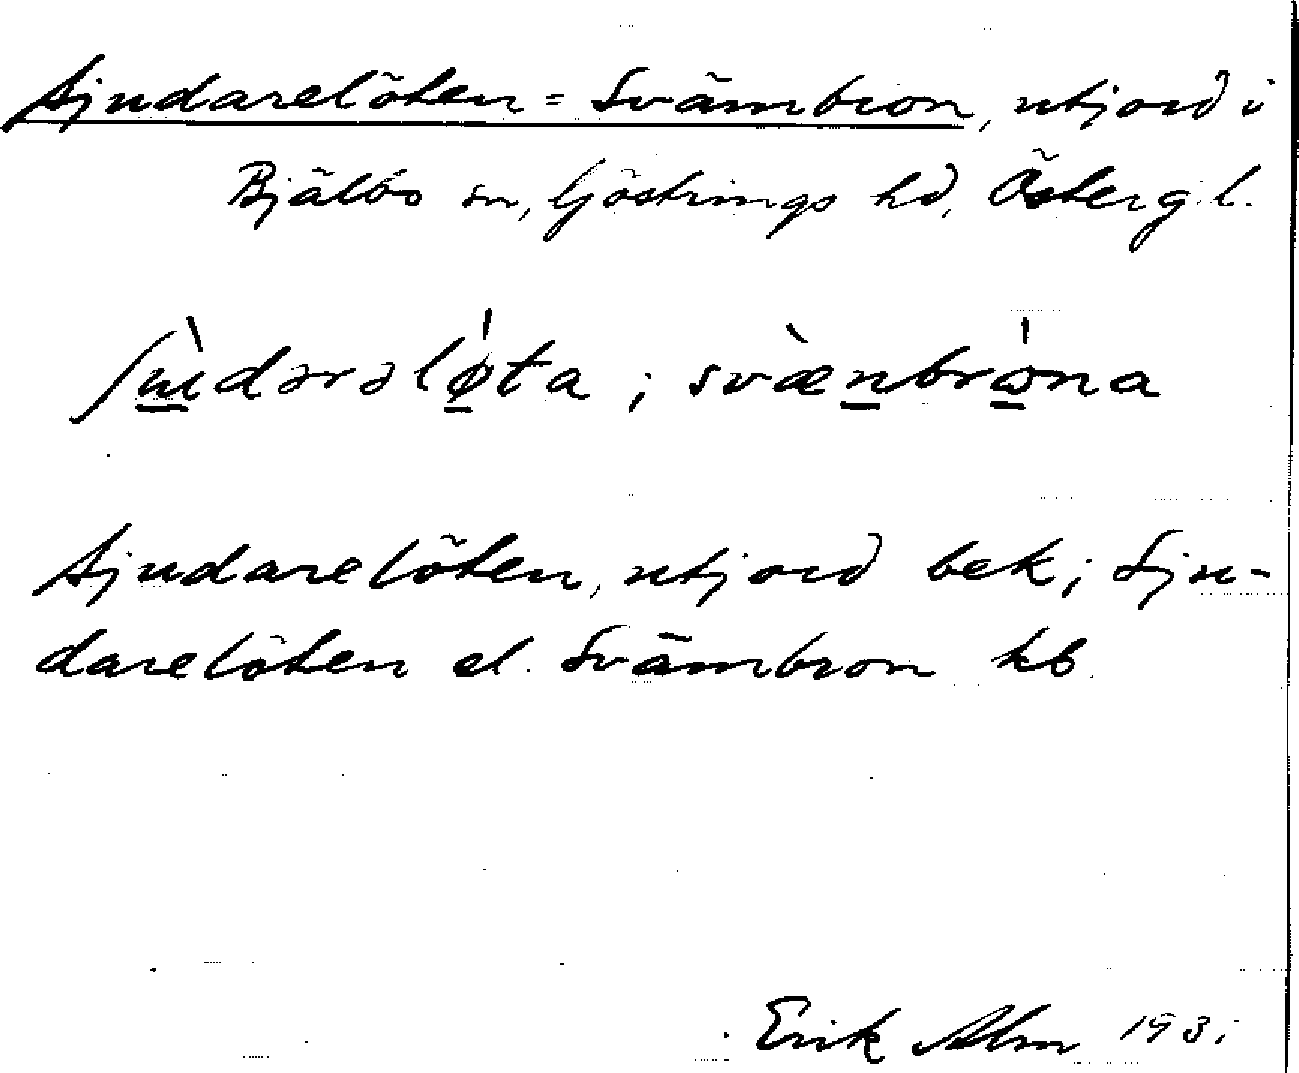 Sjudarelöten = Svämbron, utjord i
Bjälbo sn, Göstrings hd, Östergl.
ʃɯ̀dərəlǿta ; svæ̀nbrɷ́na
Sjudarelöten, utjord bek; Sju-
darelöten el. Svämbron kb.
Erik Alm 193